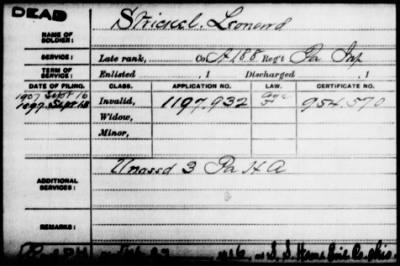 DEAD
NAME OF SOLDIER: Strickel, Leonard
SERVICE: Late rank, Co. A, 188 Reg't Pa Inf
TERM OF SERVICE: Enlisted , 1 Discharged , 1
DATE OF FILING. CLASS. APPLICATION NO. LAW. CERTIFICATE NO.
1907 Sept 16
1897 Sept 18 Invalid, 1197.932 954.570
Widow,
Minor,
ADDITIONAL SERVICES: Unassd 3 Pa H A
REMARKS: